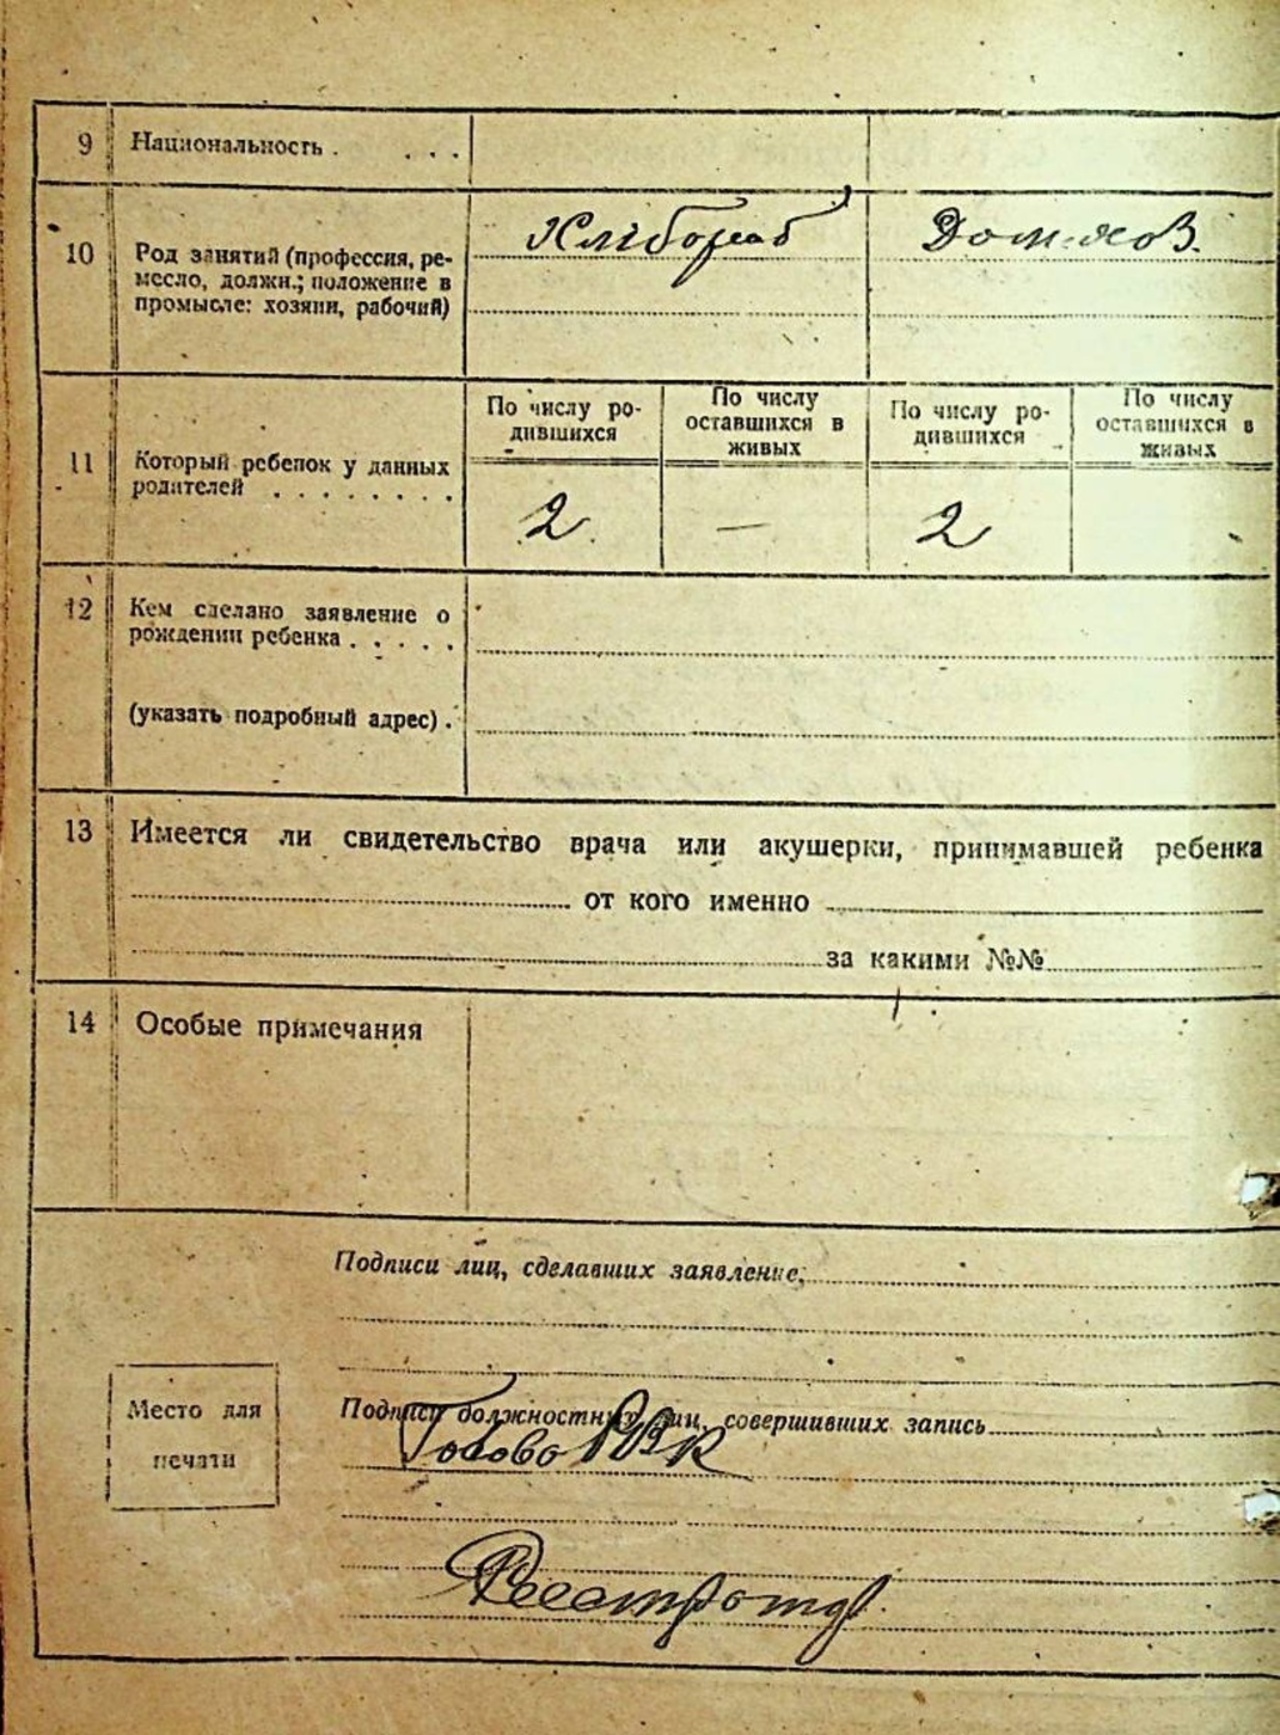 9 Национальность . . . .
10 Род занятий (профессия, ре-
месло, должн.; положение в
промысле: хозяин, рабочий)
Хлібороб
Домахоз.
11 Который ребенок у данных
родителей . . . . . . . .
По числу ро-
дившихся
По числу
оставшихся в
живых
По числу ро-
дившихся
По числу
оставшихся в
живых
2. — 2
12 Кем сделано заявление о
рождении ребенка . . . . .
(указать подробный адрес) .
13 Имеется ли свидетельство врача или акушерки, принимавшей ребенка
от кого именно
за какими №№
14 Особые примечания
Подписи лиц, сделавших заявление,
Место для
печати
Подписи должностных лиц, совершивших запись
Голова РВК